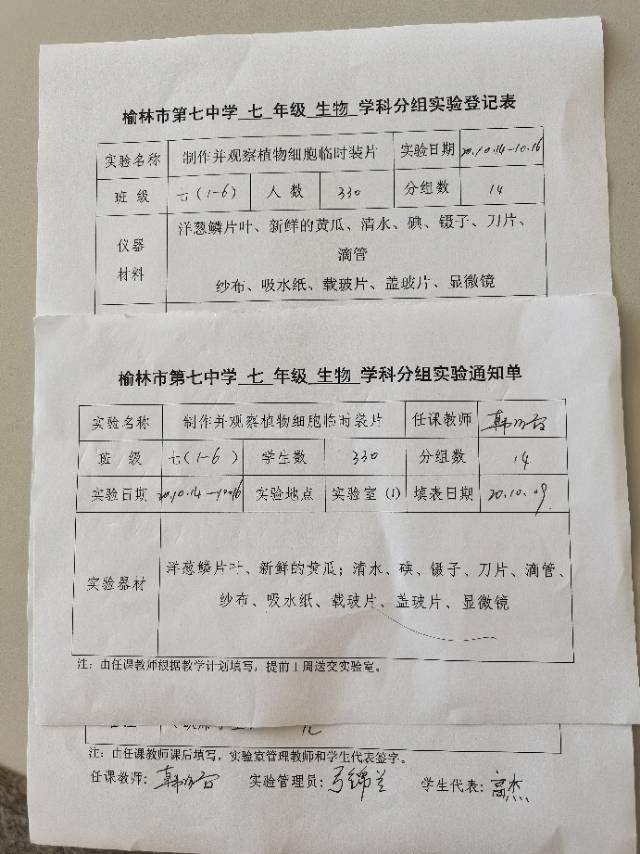 榆林市第七中学 七 年级 生物 学科分组实验登记表
实验名称 制作并观察植物细胞临时装片 实验日期 20.10.14-10.16
班 级 七(1-6) 人 数 330 分组数 14
仪器材料 洋葱鳞片叶、新鲜的黄瓜、清水、碘、镊子、刀片、
滴管
纱布、吸水纸、载玻片、盖玻片、显微镜
榆林市第七中学 七 年级 生物 学科分组实验通知单
实验名称 制作并观察植物细胞临时装片 任课教师
班 级 七(1-6) 学生数 330 分组数 14
实验日期 20.10.14-10.16 实验地点 实验室(1) 填表日期 20.10.09
实验器材 洋葱鳞片叶、新鲜的黄瓜;清水、碘、镊子、刀片、滴管、
纱布、吸水纸、载玻片、盖玻片、显微镜
注:由任课教师根据教学计划填写,提前1周送交实验室。
注:由任课教师课后填写,实验室管理教师和学生代表签字。
任课教师: 实验管理员: 学生代表:高杰